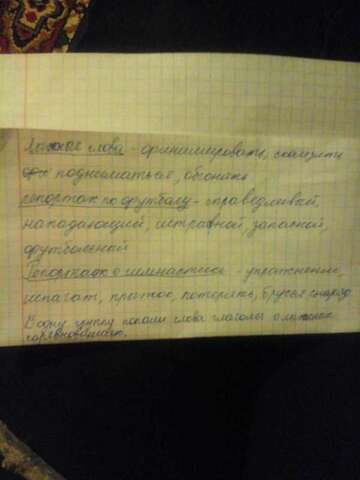 слова - финишировать,
подниматься, обогнать
репортаж по футболу - справедливый,
нападающий, штрафной, запасной,
футбольный
Репортаж о гимнастике - упражнение,
шпагат, прыжок, потерять, брусья снаряд
В одну группу попали слова глаголы о лыжных
соревнованиях.